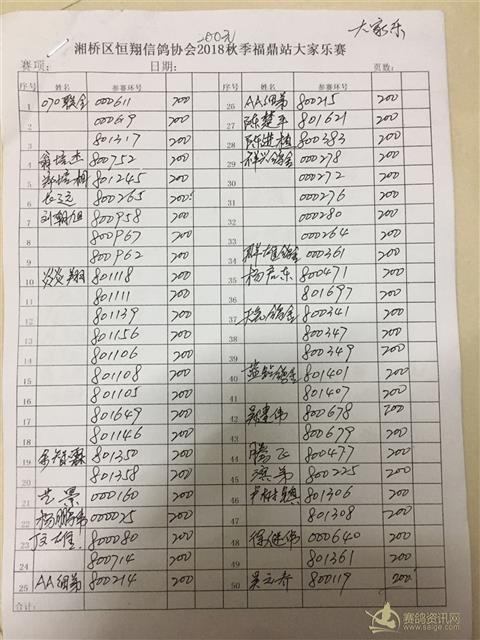 200元
大家乐
湘桥区恒翔信鸽协会2018秋季福鼎站大家乐赛
赛项: 日期: 页数:
序号 姓名 参赛环号 序号 姓名 参赛环号
1 070联合 000611 200 26 AA细弟 800215 200
2 000619 200 27 陈楚平 801621 200
3 801317 200 28 陈进植 800383 200
4 翁培杰 800752 200 29 祥兴鸽舍 000278 200
5 801245 200 30 000272 200
6 800265 200 31 000276 200
7 刘朝旭 800958 200 32 000280 200
8 800967 200 33 000264 200
9 800962 200 34 群雄鸽舍 000361 200
10 炎炎翔 801118 200 35 杨君东 800471 200
11 801111 200 36 801697 200
12 801139 200 37 鸽舍 800341 200
13 801156 200 38 800347 200
14 801106 200 39 800349 200
15 801108 200 40 801401 200
16 801105 200 41 801407 200
17 801649 200 42 伟 800678 200
18 801146 200 43 800679 200
19 801350 200 44 腾飞 800477 200
20 801358 200 45 滨弟 800225 200
21 艺景 000160 200 46 801306 200
22 杨鹏伟 000025 200 47 801308 200
23 雄 800080 200 48 徐继伟 000640 200
24 800714 200 49 801361 200
25 AA细弟 800214 200 50 800119 200
合计:
赛鸽资讯网
www.saige.com